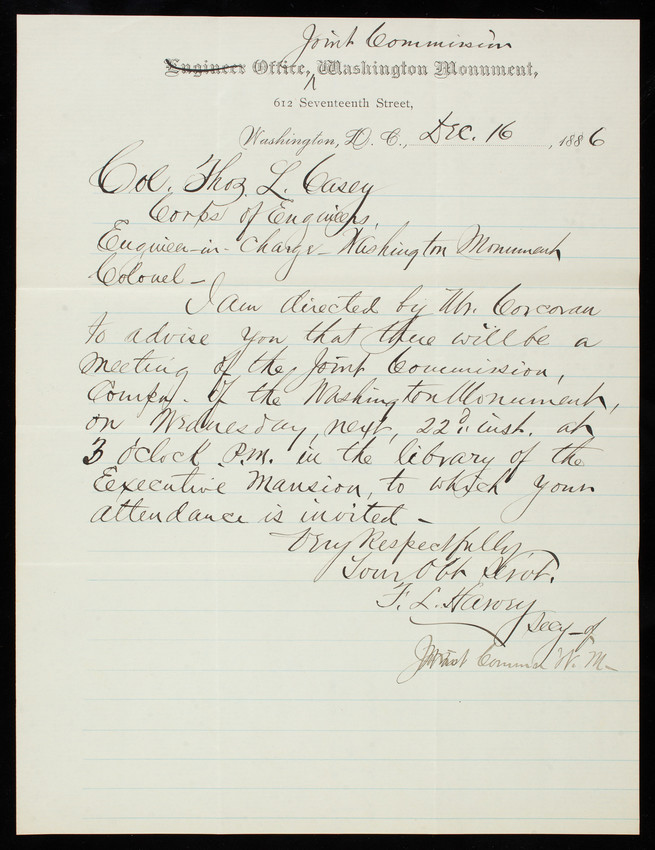 Joint Commission
Engineer Office, Washington Monument,
612 Seventeenth Street,
Washington, D. C., Dec. 16, 1886
Col. Thos. L. Casey
Corps of Engineers,
Engineer-in-Charge - Washington Monument
Colonel -
I am directed by Mr. Corcoran
to advise you that there will be a
meeting of the Joint Commission,
of the Washington Monument,
on Wednesday, next, 22d. inst. at
3 o'clock P.M. in the library of the
Executive Mansion, to which your
attendance is invited -
Very Respectfully,
Your Obt Servt.
F. L. Harvey
Secy - of
Joint Commn W. M -